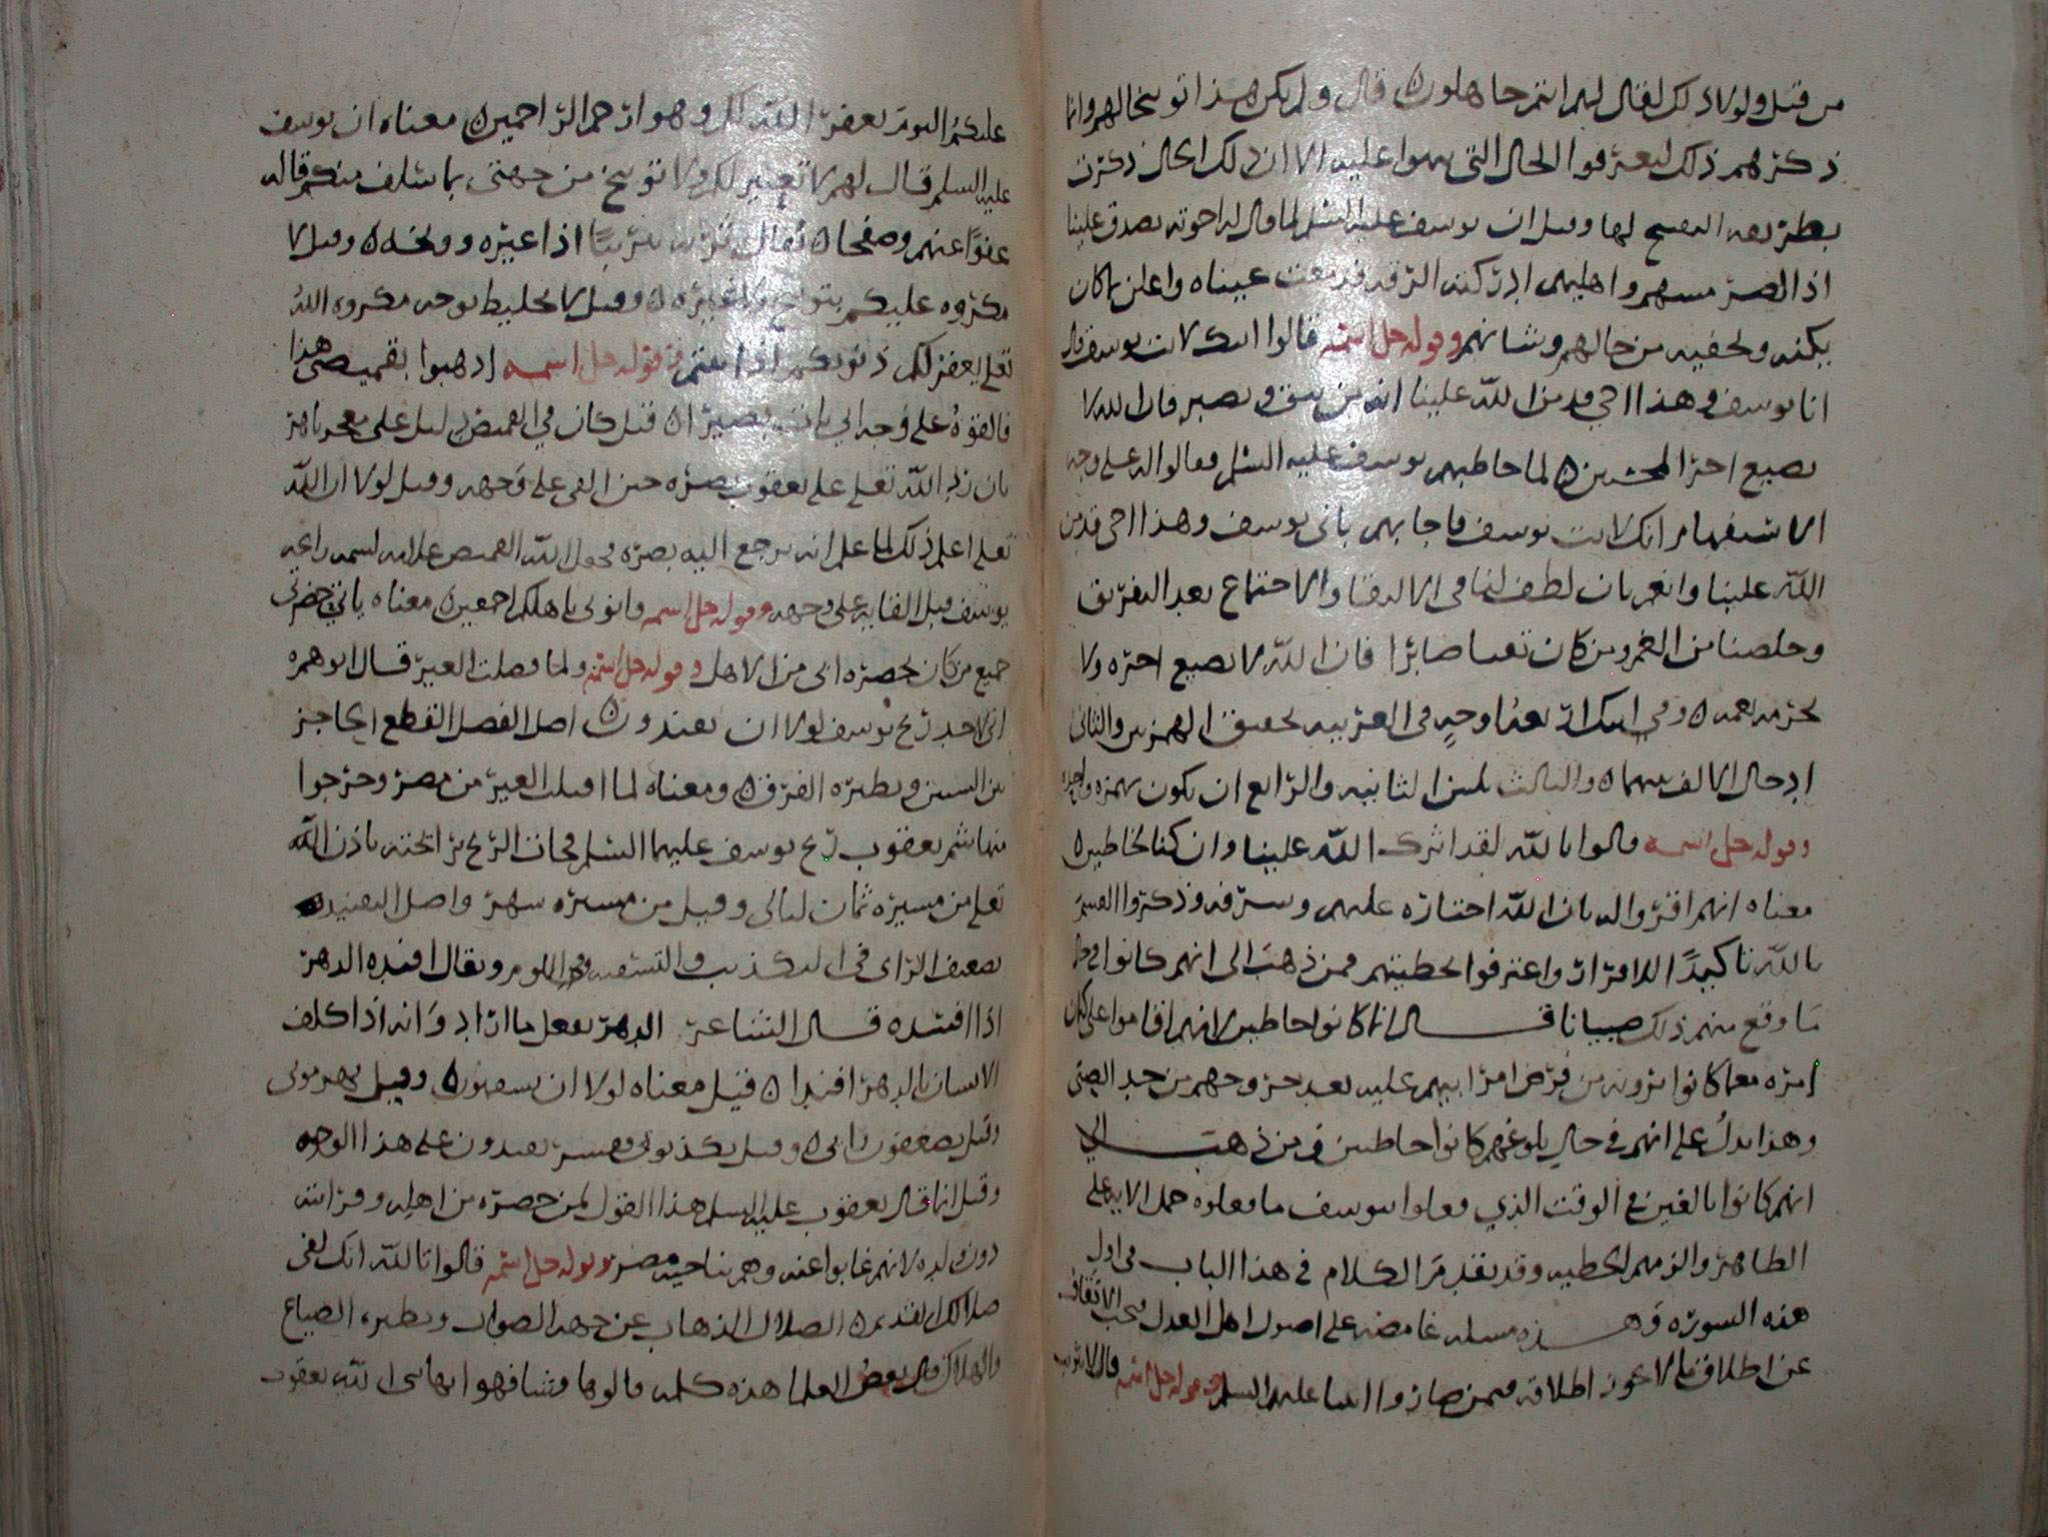 من قبل ولولا ذلك لقال لهم انتم جاهلون قال ولم يكن هذا توبيخا لهم وانما
ذكرهم ذلك ليعترفوا الحال التي عليه الا ان ذلك الحال ذكرت
بطريقه لها وقيل ان يوسف عليه السلم لما قال له اخوته تصدق علينا
اذ الضر مسهم واهليهم ادركته الرقه فدمعت عيناه واعلن ما كان
يكتمه ويخفيه من حالهم وشانهم وقوله جل اسمه قالوا انك لانت يوسف قال
انا يوسف وهذا اخي قد من الله علينا انه من يتق ويصبر فان الله لا
يضيع اجر المحسنين لما خاطبهم يوسف عليه السلم فقالوا له على وجه
الاستفهام انك لانت يوسف فاجابهم باني يوسف وهذا اخي قد من
الله علينا وانعم بان لطف لنا في الالتقا والاجتماع بعد التفريق
وخلصنا من الغم ومن كان تقيا صابرا فان الله لا يضيع اجره ولا
يحرمه نعمه وفي انك اربعه اوجه في العربيه تحقيق الهمزتين والثاني
ادخال الالف بينهما والثالث تليين الثانيه والرابع ان يكون بهمزه واحده
وقوله جل اسمه قالوا تالله لقد اثرك الله علينا وان كنا لخاطين
معناه انهم اقروا له بان الله اختاره عليهم وشرفه وذكروا القسم
بالله تاكيدا للاقرار واعترفوا بخطيتهم فمن ذهب الى انهم كانوا في حال
ما وقع منهم ذلك صبيانا قال انما كانوا خاطين لانهم اقاموا على كتمان
امره معما كانوا يرونه من فرض امر ابيهم عليه بعد خروجهم من حد الصبي
وهذا يدل على انهم في حال بلوغهم كانوا خاطين ومن ذهب الى
انهم كانوا بالغين في الوقت الذي فعلوا بيوسف ما فعلوه حمل الايه على
الظاهر والزمهم الخطيه وقد تقدم الكلام في هذا الباب في اول
هذه السوره وهذه مسله غامضه على اصول اهل العدل يجب الاتقاف
عن اطلاق ما لا يجوز اطلاقه فيمن صاروا انبيا عليهم السلم وقوله جل اسمه قال لا تثريب
عليكم اليوم يغفر الله لكم وهو ارحم الراحمين معناه ان يوسف
عليه السلم قال لهم لا تعيير لكم ولا توبيخ من جهتي بما سلف منكم قاله
عفوا عنهم وصفحا يقال تثريبا اذا عيره ووبخه وقيل لا
مكروه عليكم بتوبيخ ولا غيره وقيل لا تخليط يوجه مكروه الله
تعلى يغفر لكم ذنوبكم اذا وقوله جل اسمه اذهبوا بقميصي هذا
فالقوه على وجه ابي يات بصيرا قيل كان في القميص دليل على معجز باهر
بان رد الله تعلى على يعقوب بصره حين القي على وجهه وقيل لولا ان الله
تعلى اعلم ذلك لما علم انه يرجع اليه بصره فجعل الله القميص علامه لشمه رايحه
يوسف قبل القايه على وجهه وقوله جل اسمه واتوني باهلكم اجمعين معناه ياتي حضرتي
جميع من كان بحضره ابي من الاهل وقوله جل اسمه ولما فصلت العير قال ابوهم
اني لاجد ريح يوسف لولا ان تفندون اصل الفصل القطع الحاجز
بين الشيين ونظيره الفرق ومعناه لما اقبلت العير من مصر وخرجوا
منها شم يعقوب ريح يوسف عليهما السلم فجات الريح برايحته باذن الله
تعلى من مسيره ثمان ليالي وقيل من مسيره شهر واصل التفنيد
تضعيف الراى في التكذيب والتسفيه وفي اللوم ويقال افنده الدهر
اذا افسده قال الشاعر الدهر يفعل ما اراد وانه اذا كلف
الانسان بالدهر افندا قيل معناه لولا ان تسفهون وقيل تهرموني
وقيل تضعفون رايي وقيل تكذبوني وفسر تفندون على هذا الوجه
وقيل انما قال يعقوب عليه السلم هذا القول لمن حضره من اهله وقرابته
دون ولده لانهم غابوا عنه وهم بناحيه مصر وقوله جل اسمه قالوا تالله انك لفي
ضلالك القديم الضلال الذهاب عن جهه الصواب ونظيره الضياع
والهلاك قال بعض العلما هذه كلمه قالوها وشافهوا بها نبي الله يعقوب